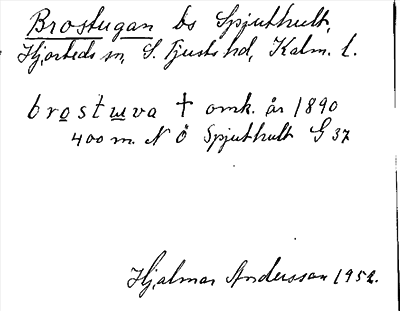 Brostugan bs Spjuthult,
Hjorteds sn, S. Tjusts hd, Kalm. l.
brostuva † omk. år 1890
400 m. N Ö Spjuthult G 37
Hjalmar Andersson 1952.